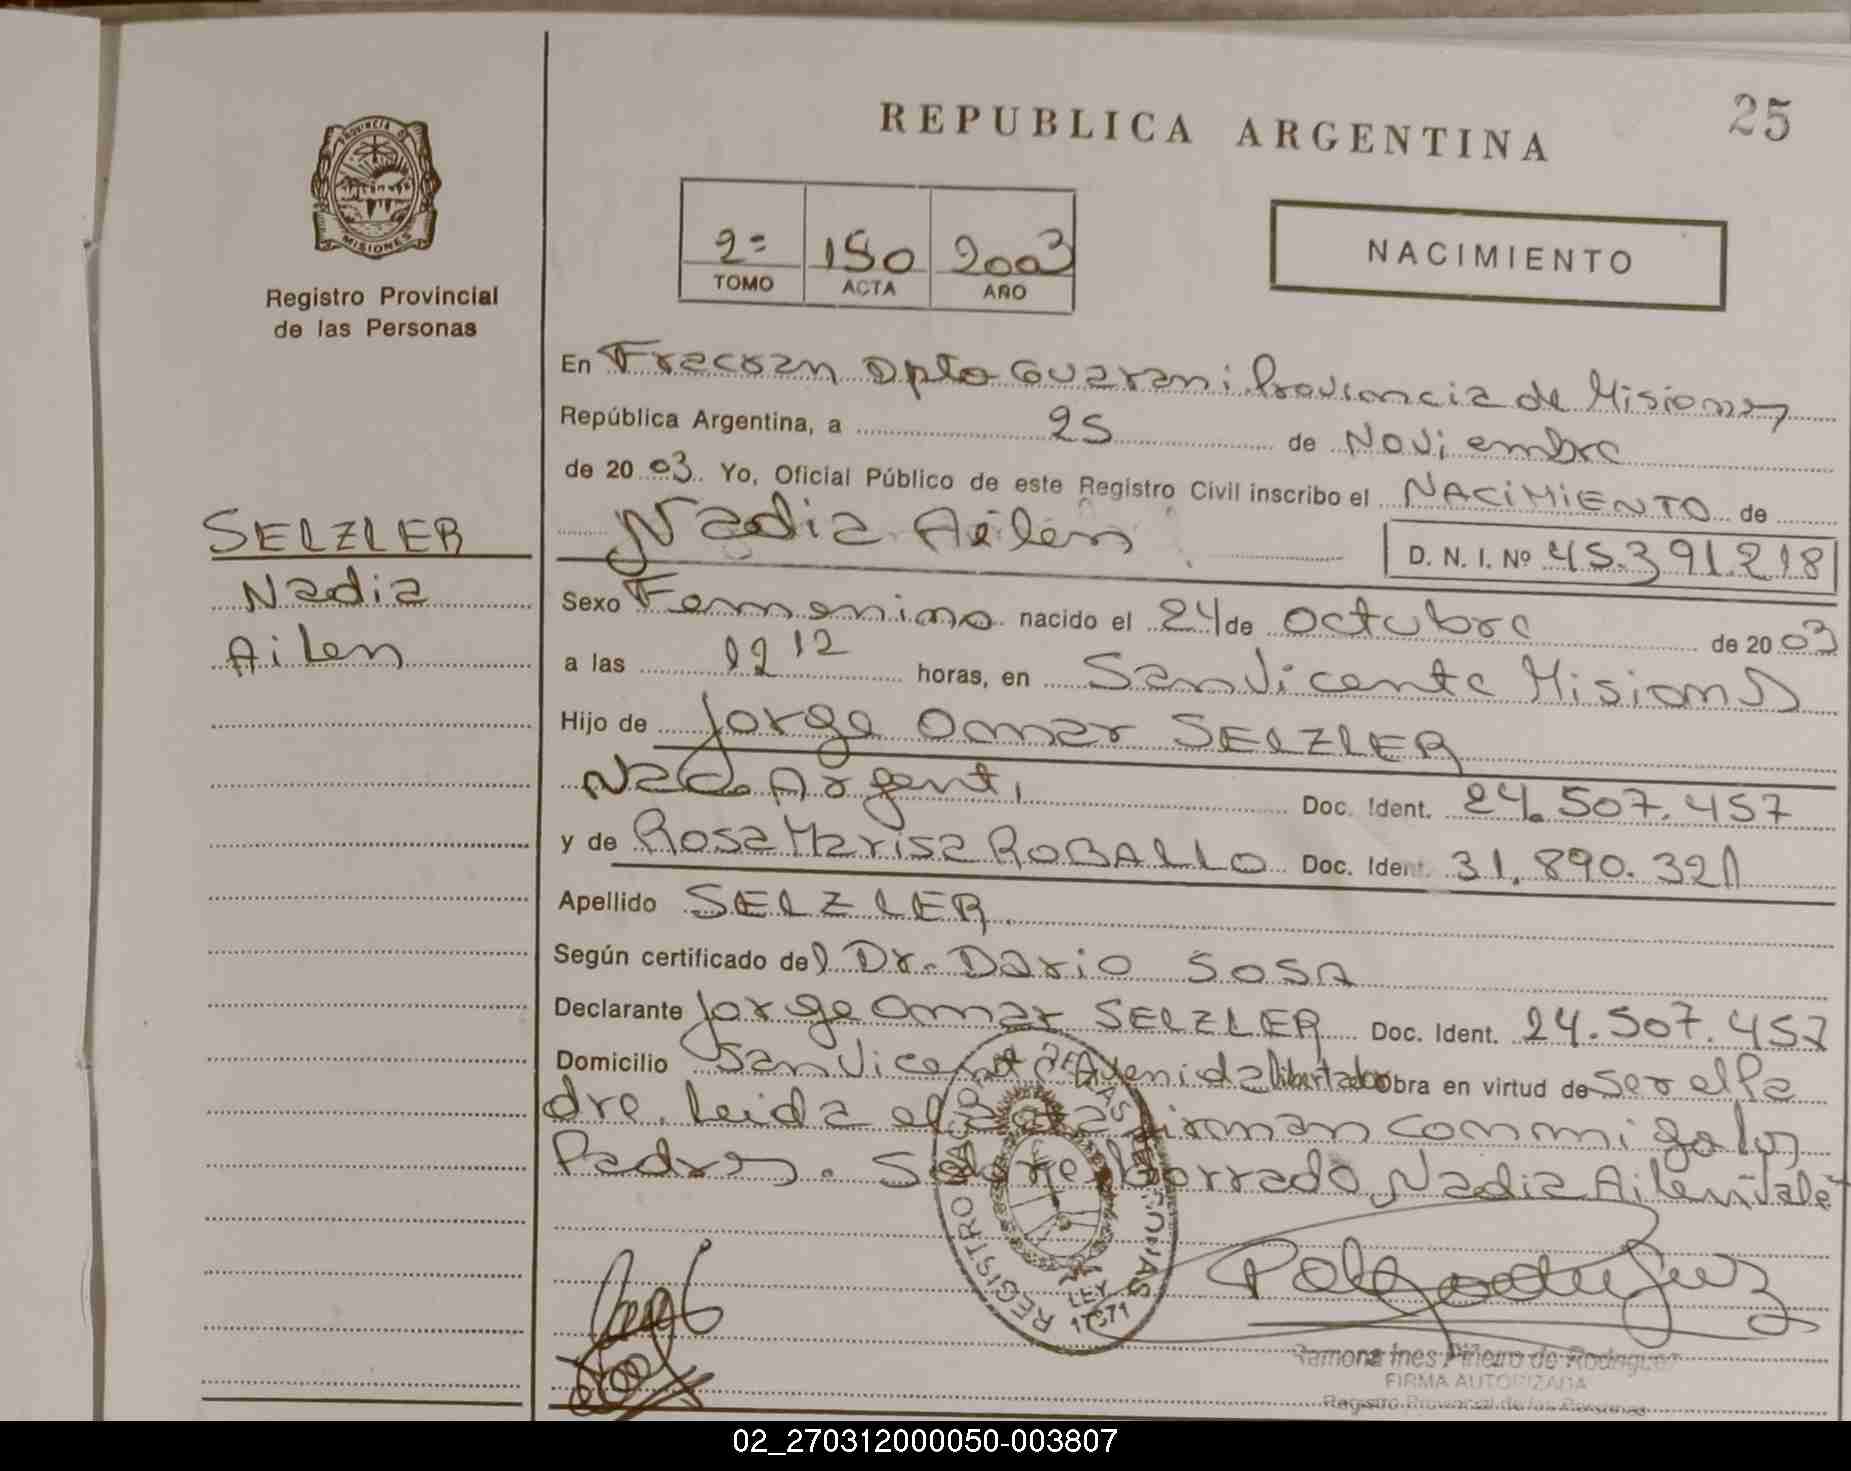 REPUBLICA ARGENTINA
25
PROVINCIA DE
MISIONES
Registro Provincial
de las Personas
2º 150 2003
TOMO ACTA AÑO
NACIMIENTO
En Fracran Dpto Guarani Provincia de Misiones
República Argentina, a 25 de Noviembre
de 2003. Yo, Oficial Público de este Registro Civil inscribo el NACIMIENTO de
Nadia Ailen D. N. I. Nº 45.391.218
SELZLER
Nadia
Ailen
Sexo Femenino nacido el 24 de Octubre de 2003
a las 12 12 horas, en San Vicente Misiones
Hijo de Jorge Omar SELZLER
Nac. Argent. Doc. Ident. 24.507.457
y de Rosa Marisa ROBALLO Doc. Ident. 31.890.321
Apellido SELZLER
Según certificado del Dr. Dario SOSA
Declarante Jorge Omar SELZLER Doc. Ident. 24.507.457
Domicilio San Vicente Avenida libertador obra en virtud de ser el Pa
dre. Leida el acta firman conmigo los
Padres. Sobre borrado Nadia Ailen Vale
REGISTRO
LEY
17671
Ramona Ines Piñeiro de Rodriguez
FIRMA AUTORIZADA
Registro Provincial de las Personas
02_270312000050-003807